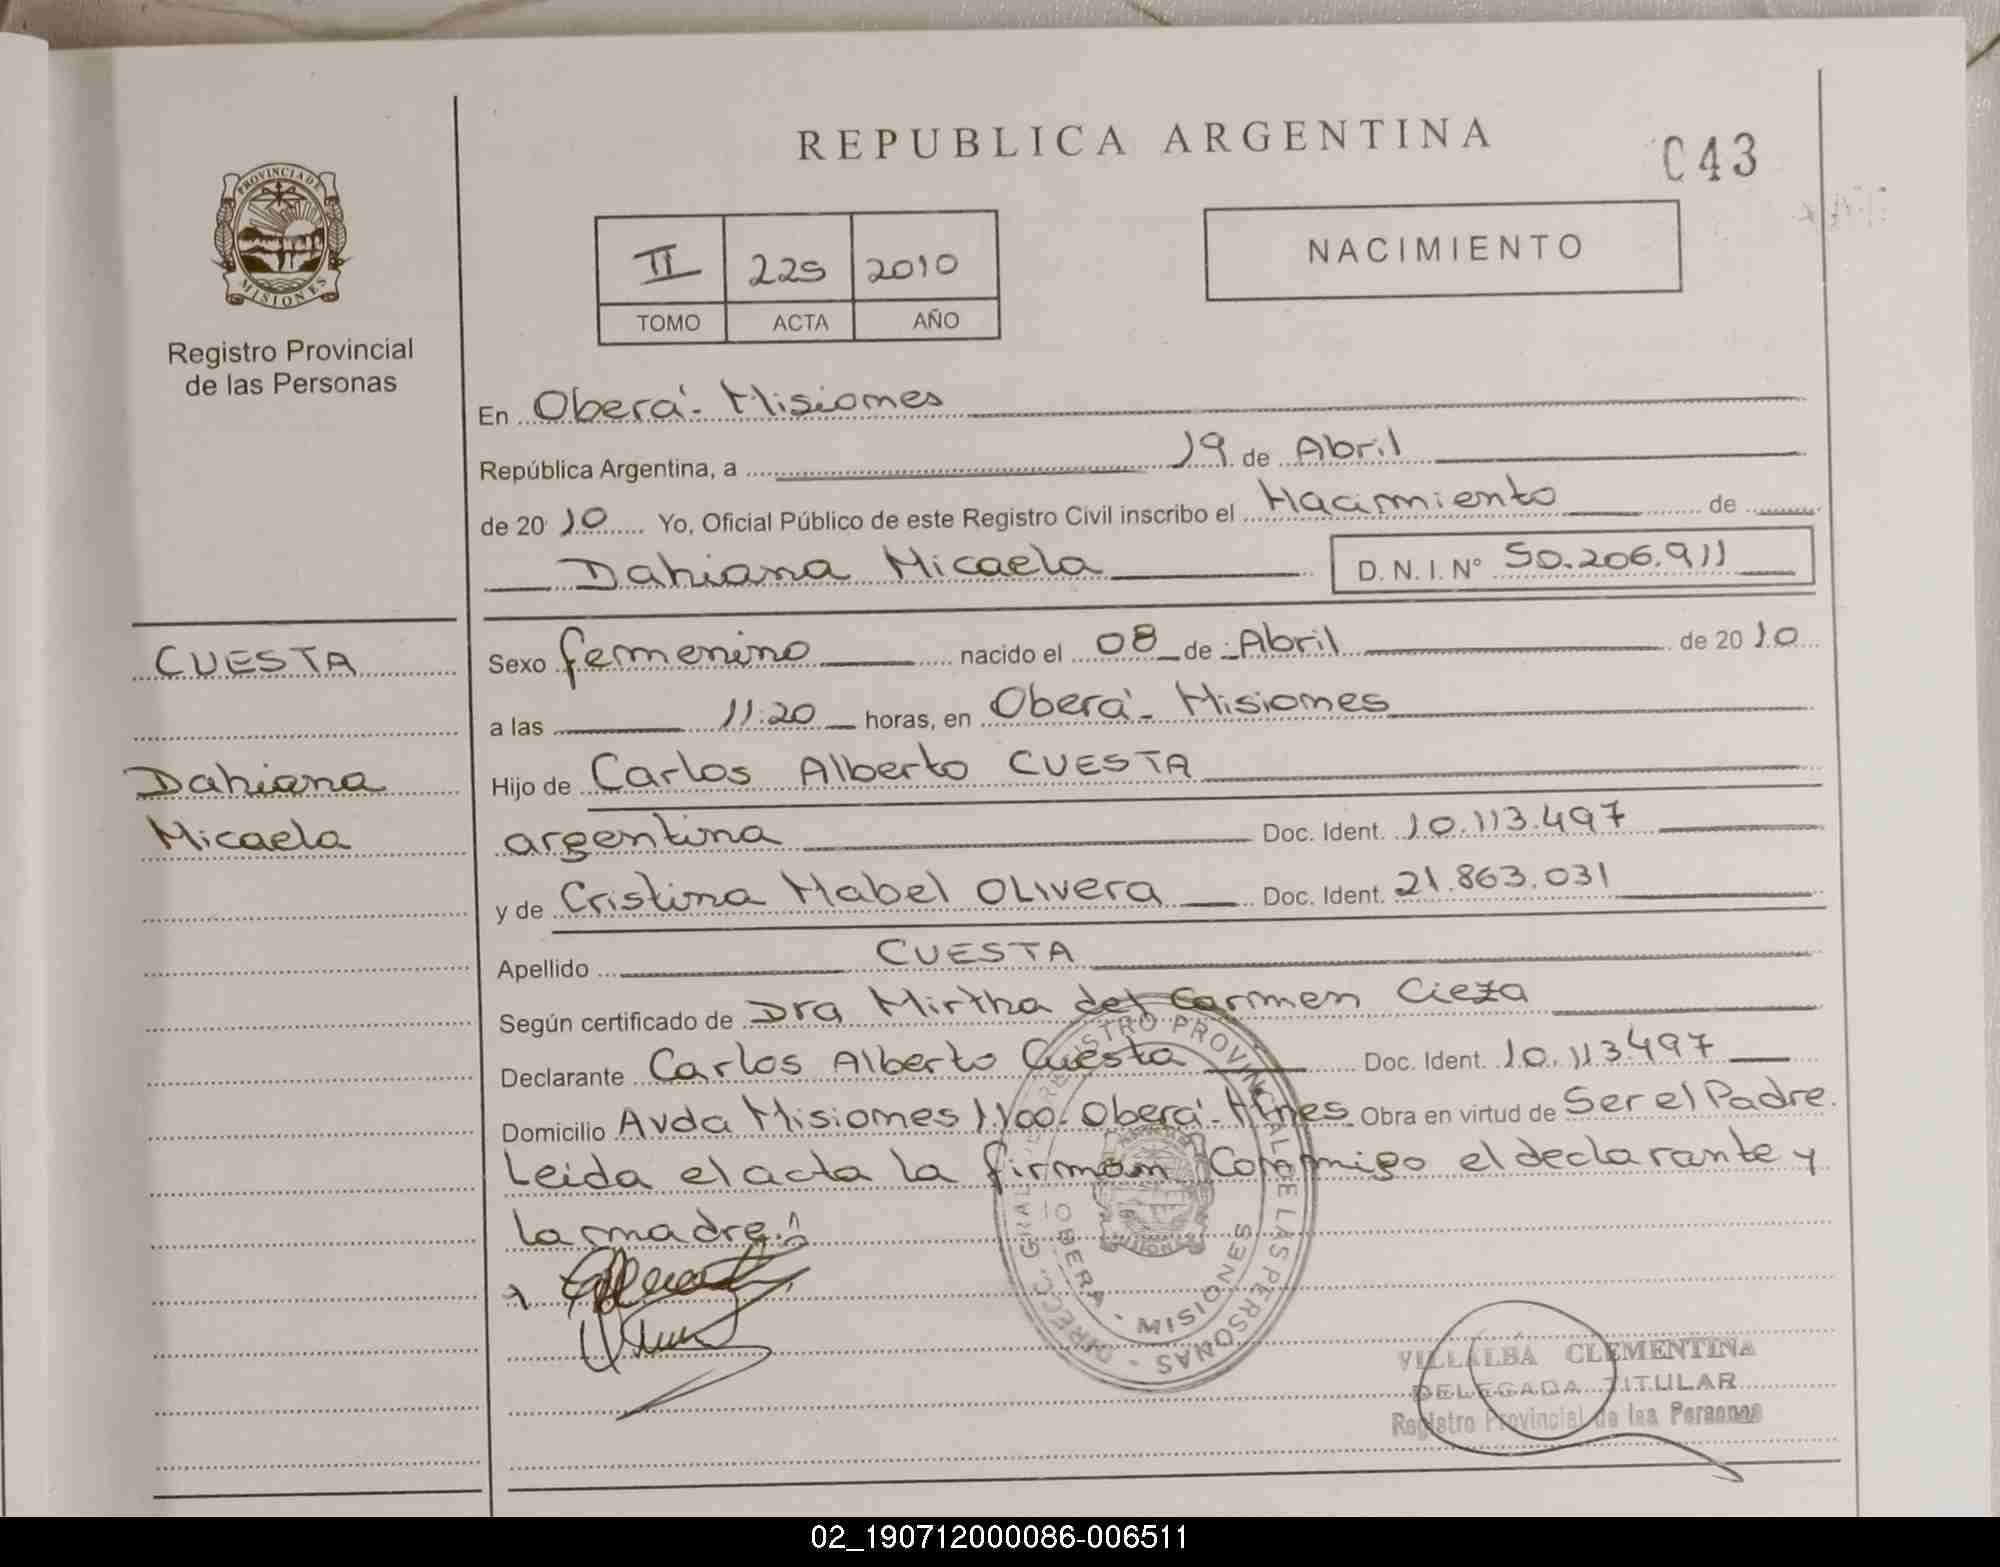 REPUBLICA ARGENTINA
C43
PROVINCIA DE
MISIONES
Registro Provincial
de las Personas
II 225 2010
TOMO ACTA AÑO
NACIMIENTO
En Oberá - Misiones
República Argentina, a 19 de Abril
de 20 10 Yo, Oficial Público de este Registro Civil inscribo el Nacimiento de
Dahiana Micaela D.N.I. N° 50.206.911
CUESTA
Dahiana
Micaela
Sexo femenino nacido el 08 de Abril de 20 10
a las 11:20 horas, en Oberá - Misiones
Hijo de Carlos Alberto CUESTA
argentina Doc. Ident. 10.113.497
y de Cristina Mabel OLIVERA Doc. Ident. 21.863.031
Apellido CUESTA
Según certificado de Dra Mirtha del Carmen Cieza
Declarante Carlos Alberto Cuesta Doc. Ident. 10.113.497
Domicilio Avda Misiones 1100 - Oberá - Mnes Obra en virtud de Ser el Padre.
Leida el acta la firman Conmigo el declarante y
la madre.
DIREC. GRAL. DE REGISTRO PROVINCIAL DE LAS PERSONAS -
OBERA - MISIONES
VILLALBA CLEMENTINA
DELEGADA TITULAR
Registro Provincial de las Personas
02_190712000086-006511